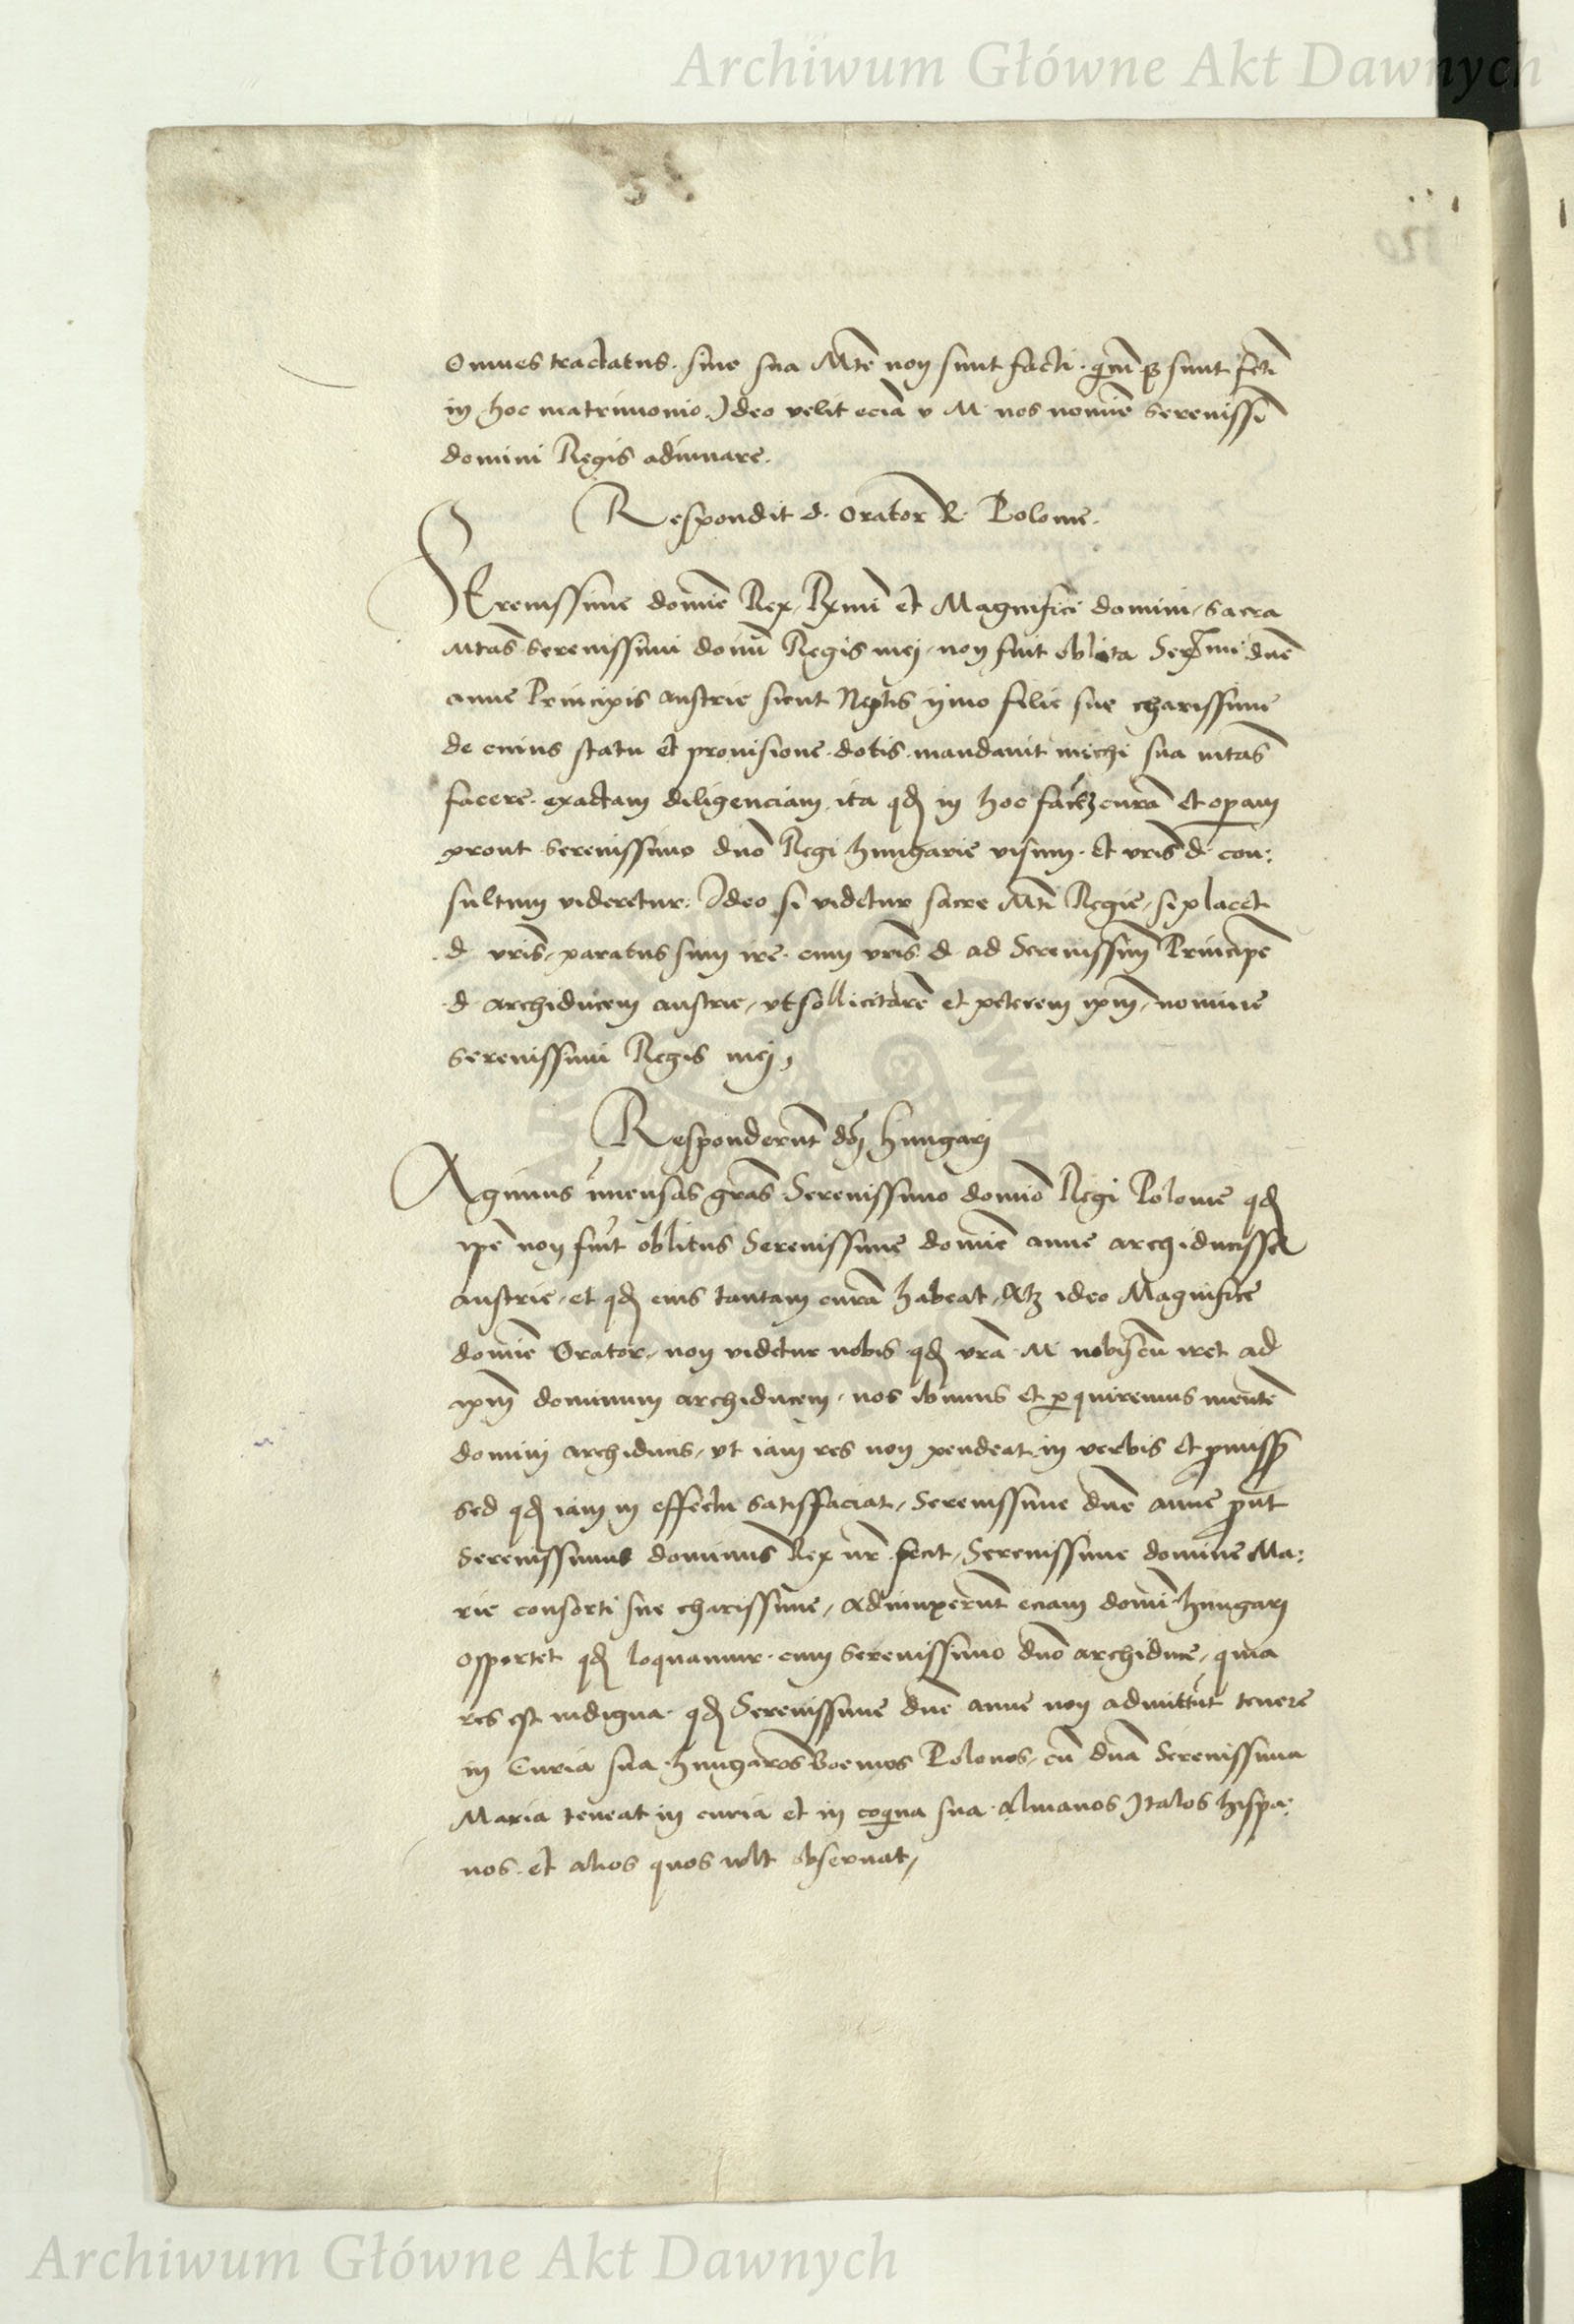 Archiwum Główne Akt Dawnych
omnes tractatus. sine sua Mte non sunt facti. sunt fcti
in hoc matrimonio. Ideo velit eciã v M. nos nomiẽ Serenissi
domini Regis adiuuare.
Respondit d. orator R. Polonie.
SErenissime domiẽ Rex, Rxmi et Magnifici domini, sacra
Mtas Serenissimi domi Regis mei, non fuit oblita Serxmi dnẽ
anne Principis austrie sicut Neptis ymo filie sue charissime
de cuius statu et prouisione. dotis. mandauit michi sua mtas
facere. exactam diligenciam, ita qd in hoc curã et operam
prout Serenissimo dnõ Regi hungarie visum. et vris d. con:
sultum videretur. Ideo si videtur sacre Mti Regie, si placet
d vris, paratus sum ire. cum vris d. ad Serenissim Principẽ
d archiducem austrie, vt sollicitarẽ et peterem ipm, nomine
Serenissimi Regis mei,
Responderũt dni hungari
Agimus imensas gras Serenissimo domiõ Regi Polonie qd
ipẽ non fuit oblitus Serenissime domiẽ anne archiducisse
austrie, et qd eius tantam curã habeat, ideo Magnifice
domiẽ Orator, non videtur nobis qd vra M. nobiscũ iret ad
ipm dominum archiducem, nos ibimus et perquiremus mentẽ
domini archiducis, vt iam res non pendeat in verbis et
sed qd iam in effectu satisfaciat, Serenissime dnẽ anne prout
Serenissimus dominus Rex nr fecit, Serenissime domine Ma:
rie consorti sue charissime, Adiunxerũt eciam domi hungari
opportet qd loquamur. cum Serenissimo dnõ archiduce, quia
res est indigna. qd Serenissime dnẽ anne non admittũt tenere
in Curia sua hungaros Boemos Polonos, cũ dna Serenissima
Maria teneat in curia et in coqina sua. almanos Italos hispa:
nos. et alios quos vlt obseruat,
Archiwum Główne Akt Dawnych